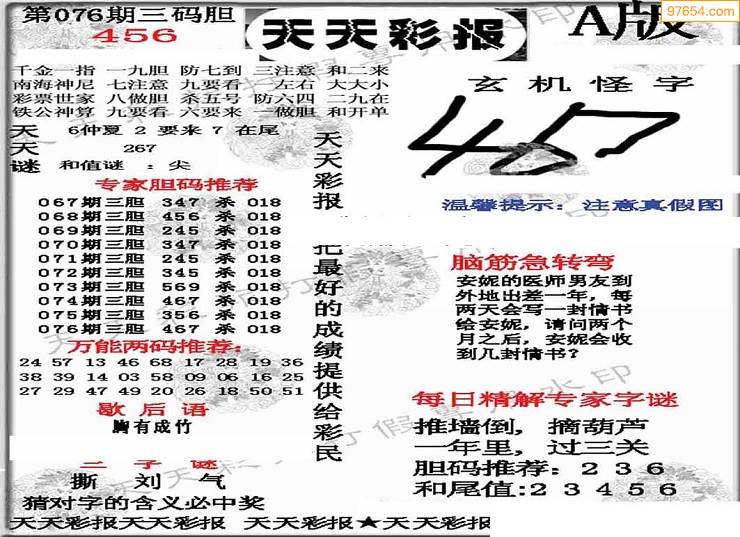 第076期三码胆
456
天天彩报
A版
97654.com
千金一指 一九胆 防七到 三注意 和二来
南海神尼 七注意 九要看 左右 大大小
彩票世家 八做胆 杀五号 防六四 二九在
铁公神算 九要看 六要来 一做胆 和开单
天天谜
6仲夏 2 要来 7 在尾
267
和值谜 : 尖
玄机怪字
467
温馨提示: 注意真假图
专家胆码推荐
067期三胆 347 杀 018
068期三胆 456 杀 018
069期三胆 245 杀 018
070期三胆 347 杀 018
071期三胆 245 杀 018
072期三胆 345 杀 018
073期三胆 569 杀 018
074期三胆 467 杀 018
075期三胆 356 杀 018
076期三胆 467 杀 018
天天彩报
把最好的成绩提供给彩民
脑筋急转弯
安妮的医师男友到
外地出差一年，每
两天会写一封情书
给安妮，请问两个
月之后，安妮会收
到几封情书？
万能两码推荐:
24 57 13 46 68 17 28 19 36
38 39 14 03 58 09 06 16 25
27 29 47 49 20 26 18 50 51
歇后语
胸有成竹
每日精解专家字谜
推墙倒，摘葫芦
一年里，过三关
胆码推荐：2 3 6
和尾值:2 3 4 5 6
三字谜
撕 刘 气
猜对字的含义必中奖
天天彩报天天彩报 天天彩报★天天彩报